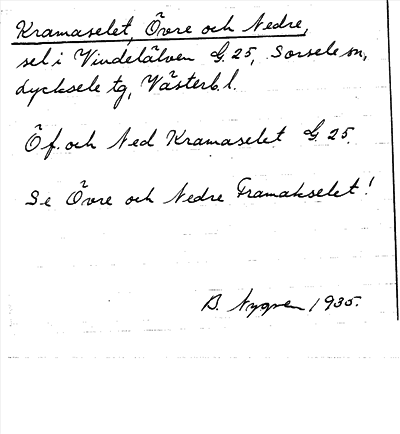 Kramaselet, Övre och Nedre,
sel i Vindelälven G. 25, Sorsele sn,
Lycksele tg, Västerb. l.
Öf. och Ned Kramaselet G. 25.
Se Övre och Nedre Framakselet!
B. Nygren 1935.